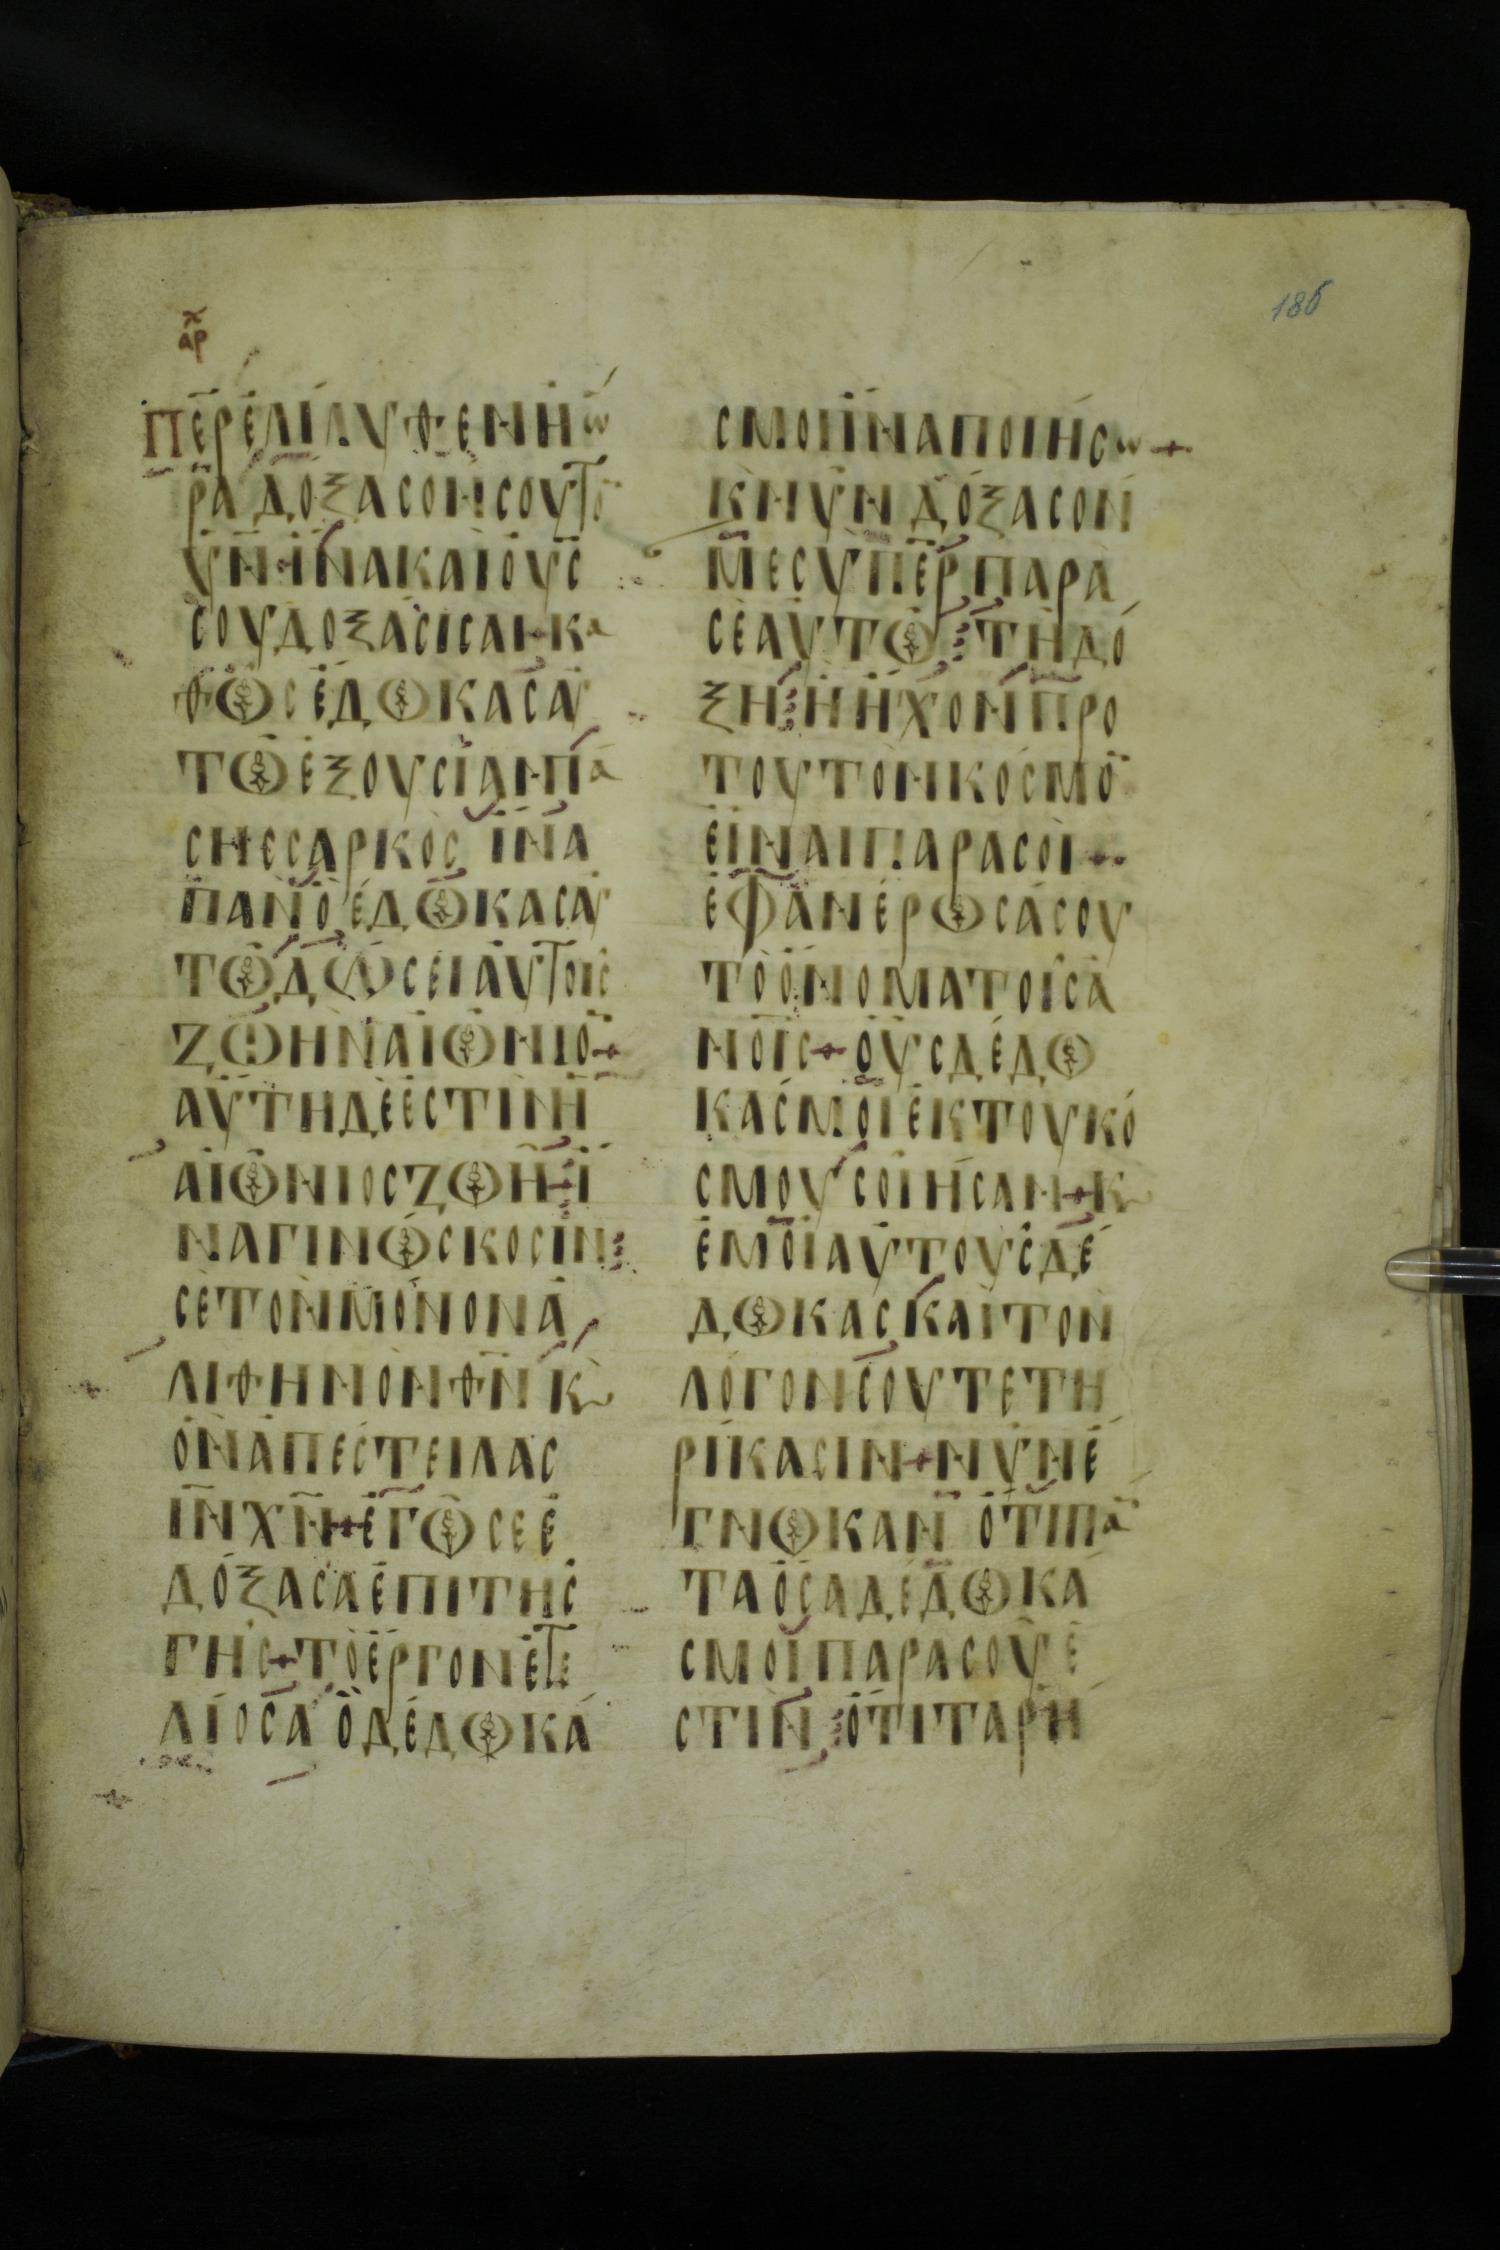 186
αρχ
ΠΕΡΕΛΙΛΥΘΕΝΗΩ
ΡΑΔΟΞΑΣΟΝΣΟΥΤΟ
Υ̅Ν̅ΙΝΑΚΑΙΟΥ̅Σ̅
ΣΟΥΔΟΞΑΣΙΣΑΙΚΑ
ΘΩΣΕΔΩΚΑΣΑΥ
ΤΩΕΞΟΥΣΙΑΝΠΑ
ΣΗΣΣΑΡΚΟΣ ΙΝΑ
ΠΑΝΟΕΔΩΚΑΣΑΥ
ΤΩΔΩΣΕΙΑΥΤΟΙΣ
ΖΩΗΝΑΙΩΝΙΟ̅+
ΑΥΤΗΔΕΕΣΤΙΝΗ
ΑΙΩΝΙΟΣΖΩΗ+Ι
ΝΑΓΙΝΩΣΚΟΣΙΝ
ΣΕΤΟΝΜΟΝΟΝΑ
ΛΙΘΗΝΟΝΘ̅Ν̅ Κ
ΟΝΑΠΕΣΤΕΙΛΑΣ
Ι̅Ν̅Χ̅Ν̅+ΕΓΩΣΕΕ
ΔΟΞΑΣΑΕΠΙΤΗΣ
ΓΗΣ+ΤΟΕΡΓΟΝΕΤΕ
ΛΙΟΣΑ ΟΔΕΔΩΚΑ
ΣΜΟΙΙΝΑΠΟΙΗΣΩ+
ΚΝΥΝ ΔΟΞΑΣΟΝ
ΜΕΣΥΠ̅Ε̅Ρ̅ΠΑΡΑ
ΣΕΑΥΤΩ ΤΗΔΟ
ΞΗ ΗΗΧΟΝΠΡΟ
ΤΟΥΤΟΝΚΟΣΜΟ̅
ΕΙΝΑΙΠΑΡΑΣΟΙ+
ΕΦΑΝΕΡΩΣΑΣΟΥ
ΤΟΟΝΟΜΑΤΟΙΣΑ̅
ΝΟΙΣ+ΟΥΣΔΕΔΩ
ΚΑΣΜΟΙΕΚΤΟΥΚΟ
ΣΜΟΥ ΣΟΙΗΣΑΝ+Κ
ΕΜΟΙΑΥΤΟΥΣΔΕ
ΔΩΚΑΣΚΑΙΤΟΝ
ΛΟΓΟΝΣΟΥΤΕΤΗ
ΡΙΚΑΣΙΝ+ΝΥΝΕ
ΓΝΩΚΑΝ ΟΤΙΠΑ̅
ΤΑΟΣΑΔΕΔΩΚΑ
ΣΜΟΙΠΑΡΑΣΟΥΕ
ΣΤΙΝ ΟΤΙΤΑΡΗ